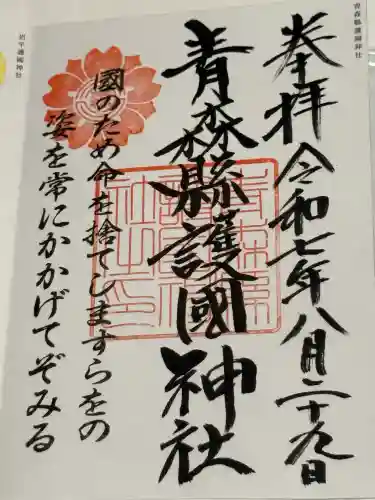 青森縣護國神社
奉拝 令和七年八月二十九日
青森縣護國神社
國のため命を捨てしますらをの
姿を常にかかげてぞみる
岩手護國神社